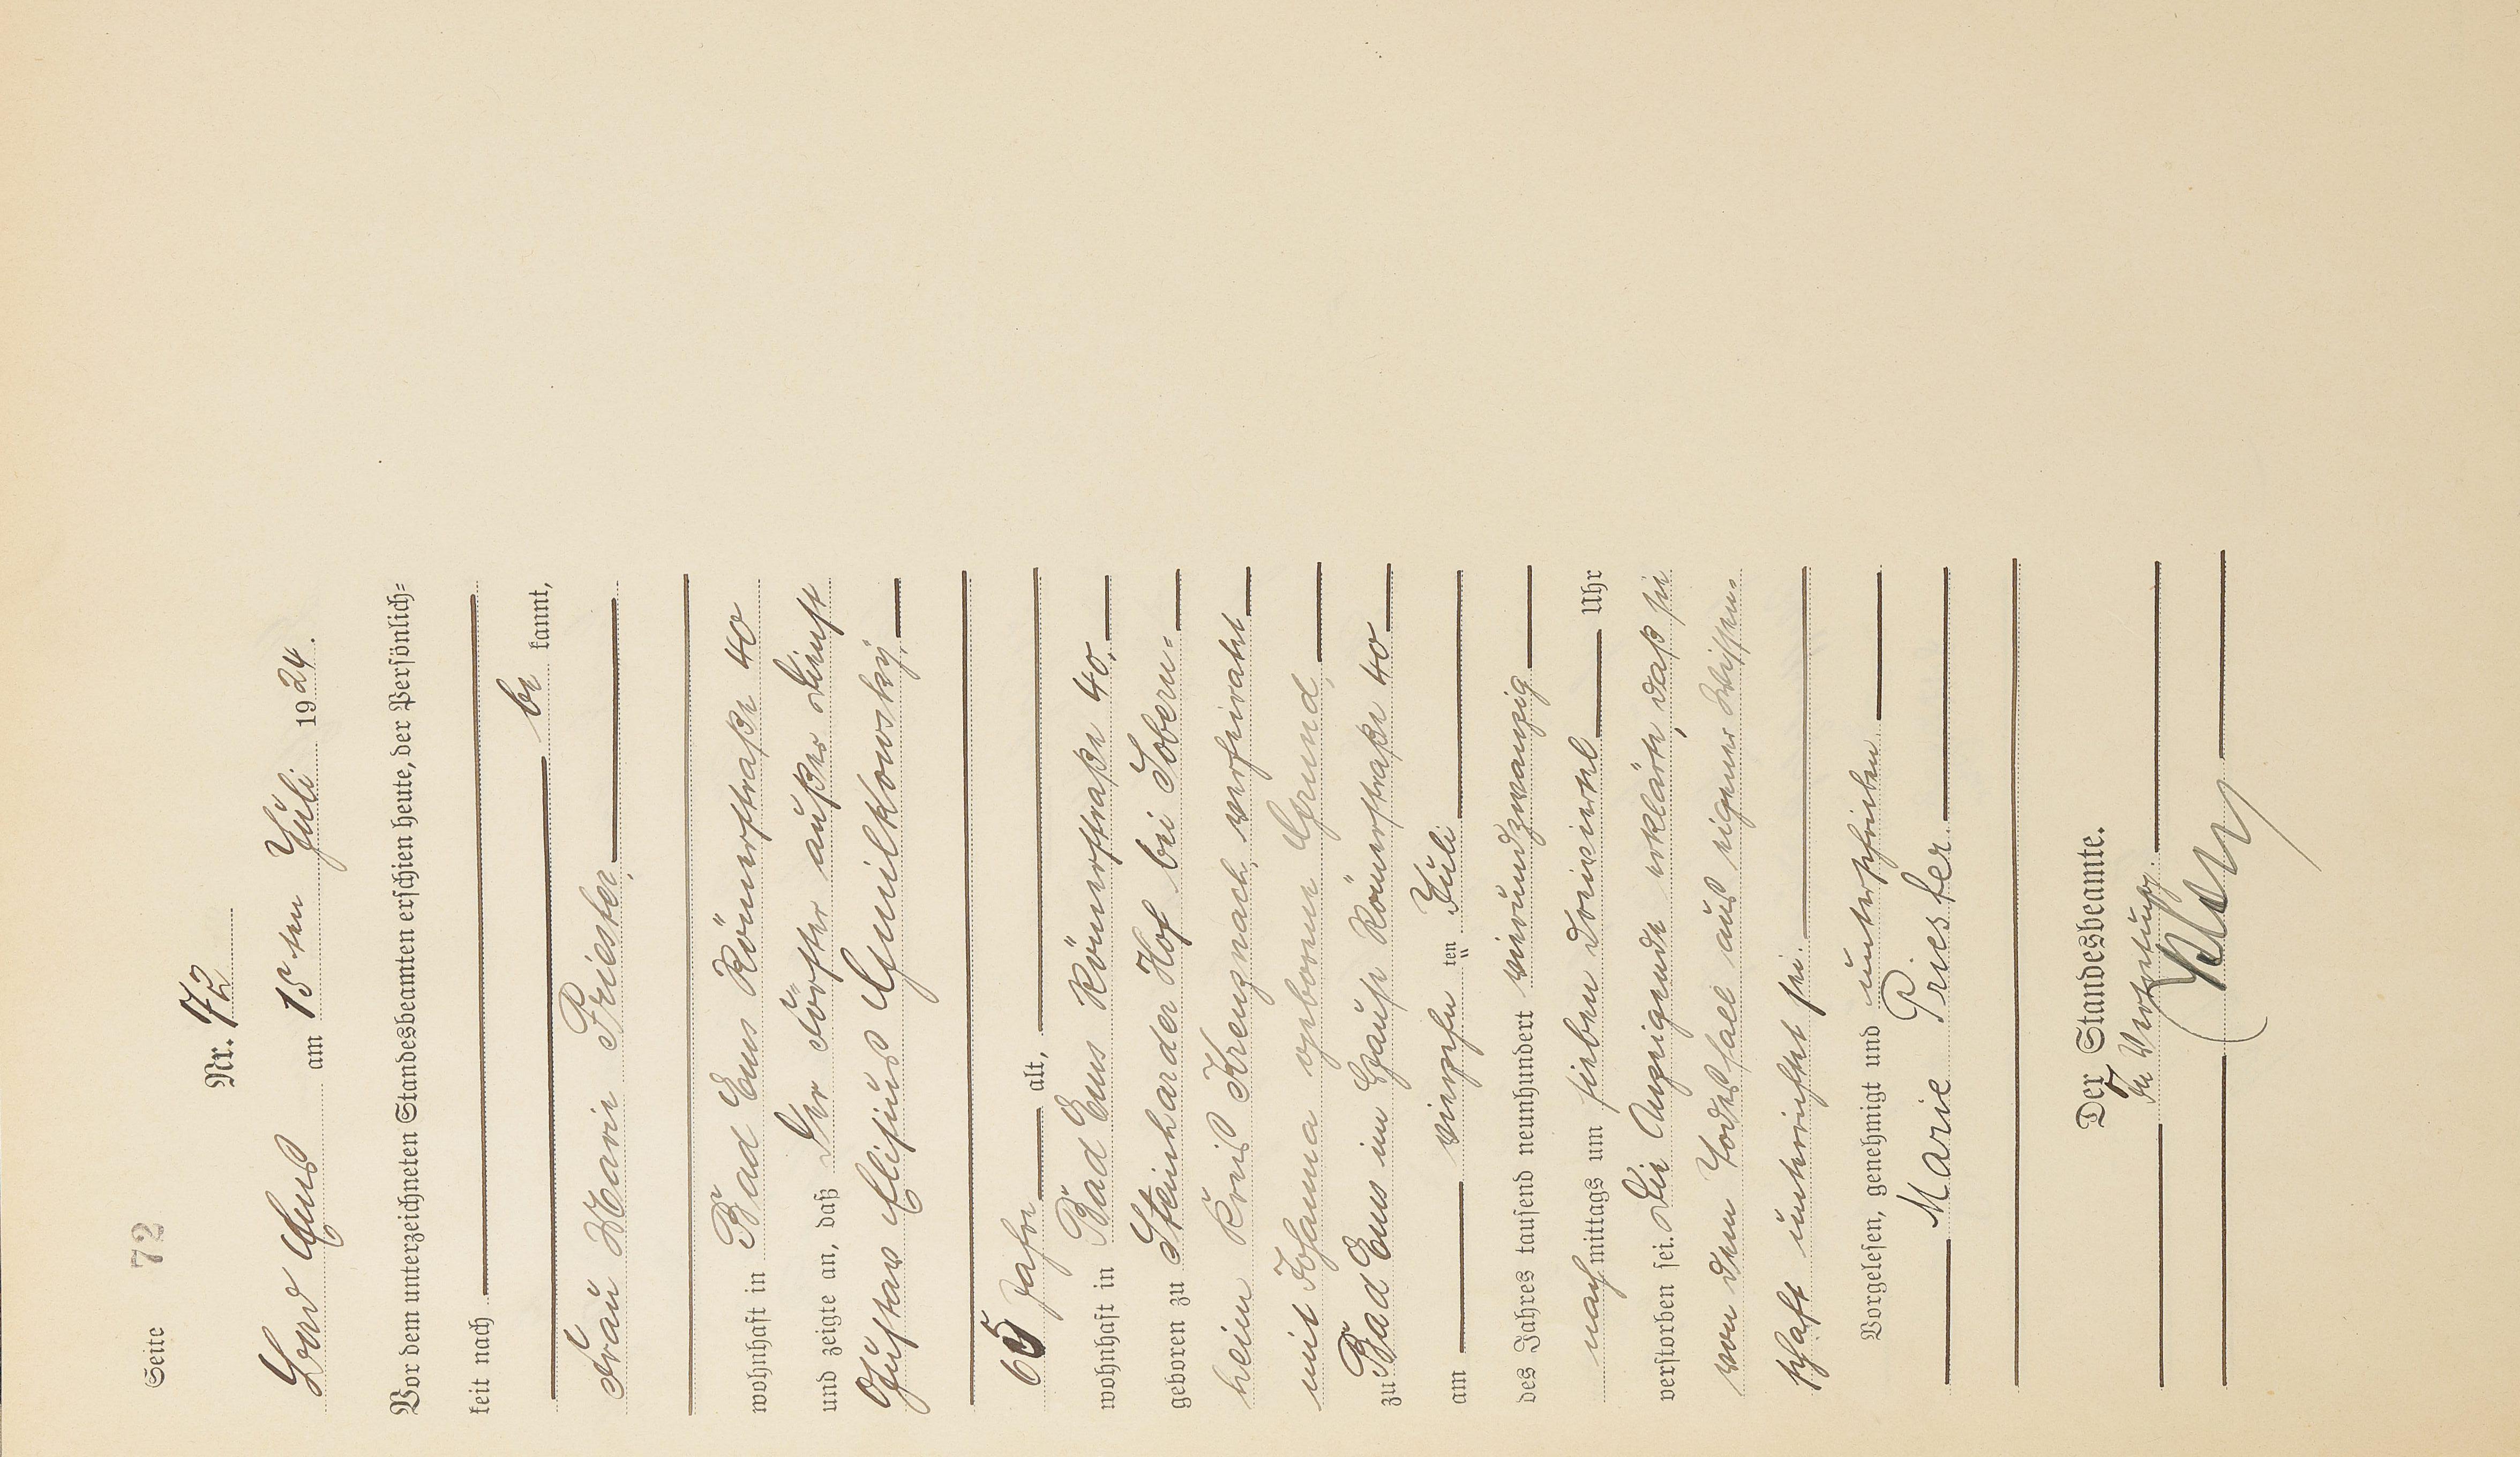 Seite 72
Nr. 72
Bad Ems am 15ten Juli 1924.
Vor dem unterzeichneten Standesbeamten erschien heute, der Persönlich=
keit nach
be kannt,
Frau Marie Priester,
wohnhaft in Bad Ems Römerstraße 40
und zeigte an, daß Der Förster außer Dienst
Gustav
65 Jahre alt,
wohnhaft in Bad Ems Römerstraße 40,
geboren zu Steinharder Hof bei Sobern=
heim Kreis Kreuznach, verheiratet
mit Johanna geborene Grund,
zu Bad Ems im Hause Römerstraße 40
am vierzehn ten Juli
des Jahres tausend neunhundert vierundzwanzig
nachmittags um sieben dreiviertel Uhr
verstorben sei. Die Anzeigende erklärte, daß sie
von dem Todesfall aus eigener Wissen=
schaft unterrichtet sei.
Vorgelesen, genehmigt und unterschrieben
Marie Priester.
Der Standesbeamte.
In Vertretung.